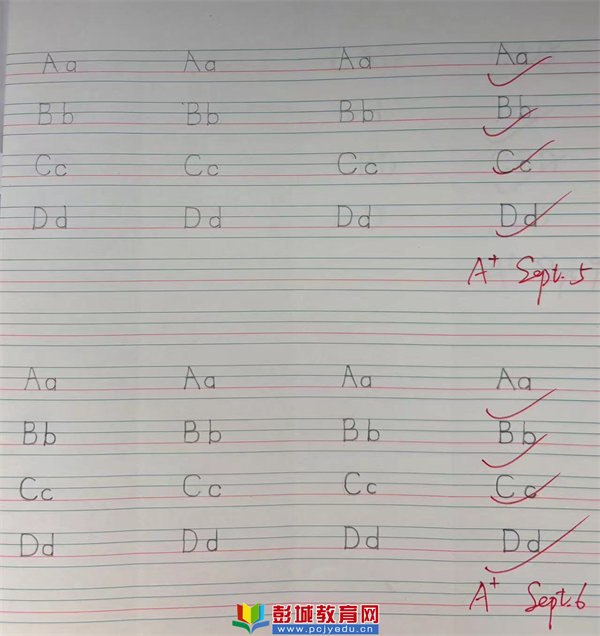 Aa Aa Aa Aa
Bb Bb Bb Bb
Cc Cc Cc Cc
Dd Dd Dd Dd
A+ Sept.5
Aa Aa Aa Aa
Bb Bb Bb Bb
Cc Cc Cc Cc
Dd Dd Dd Dd
A+ Sept.6
彭城教育网
www.pcjyedu.cn